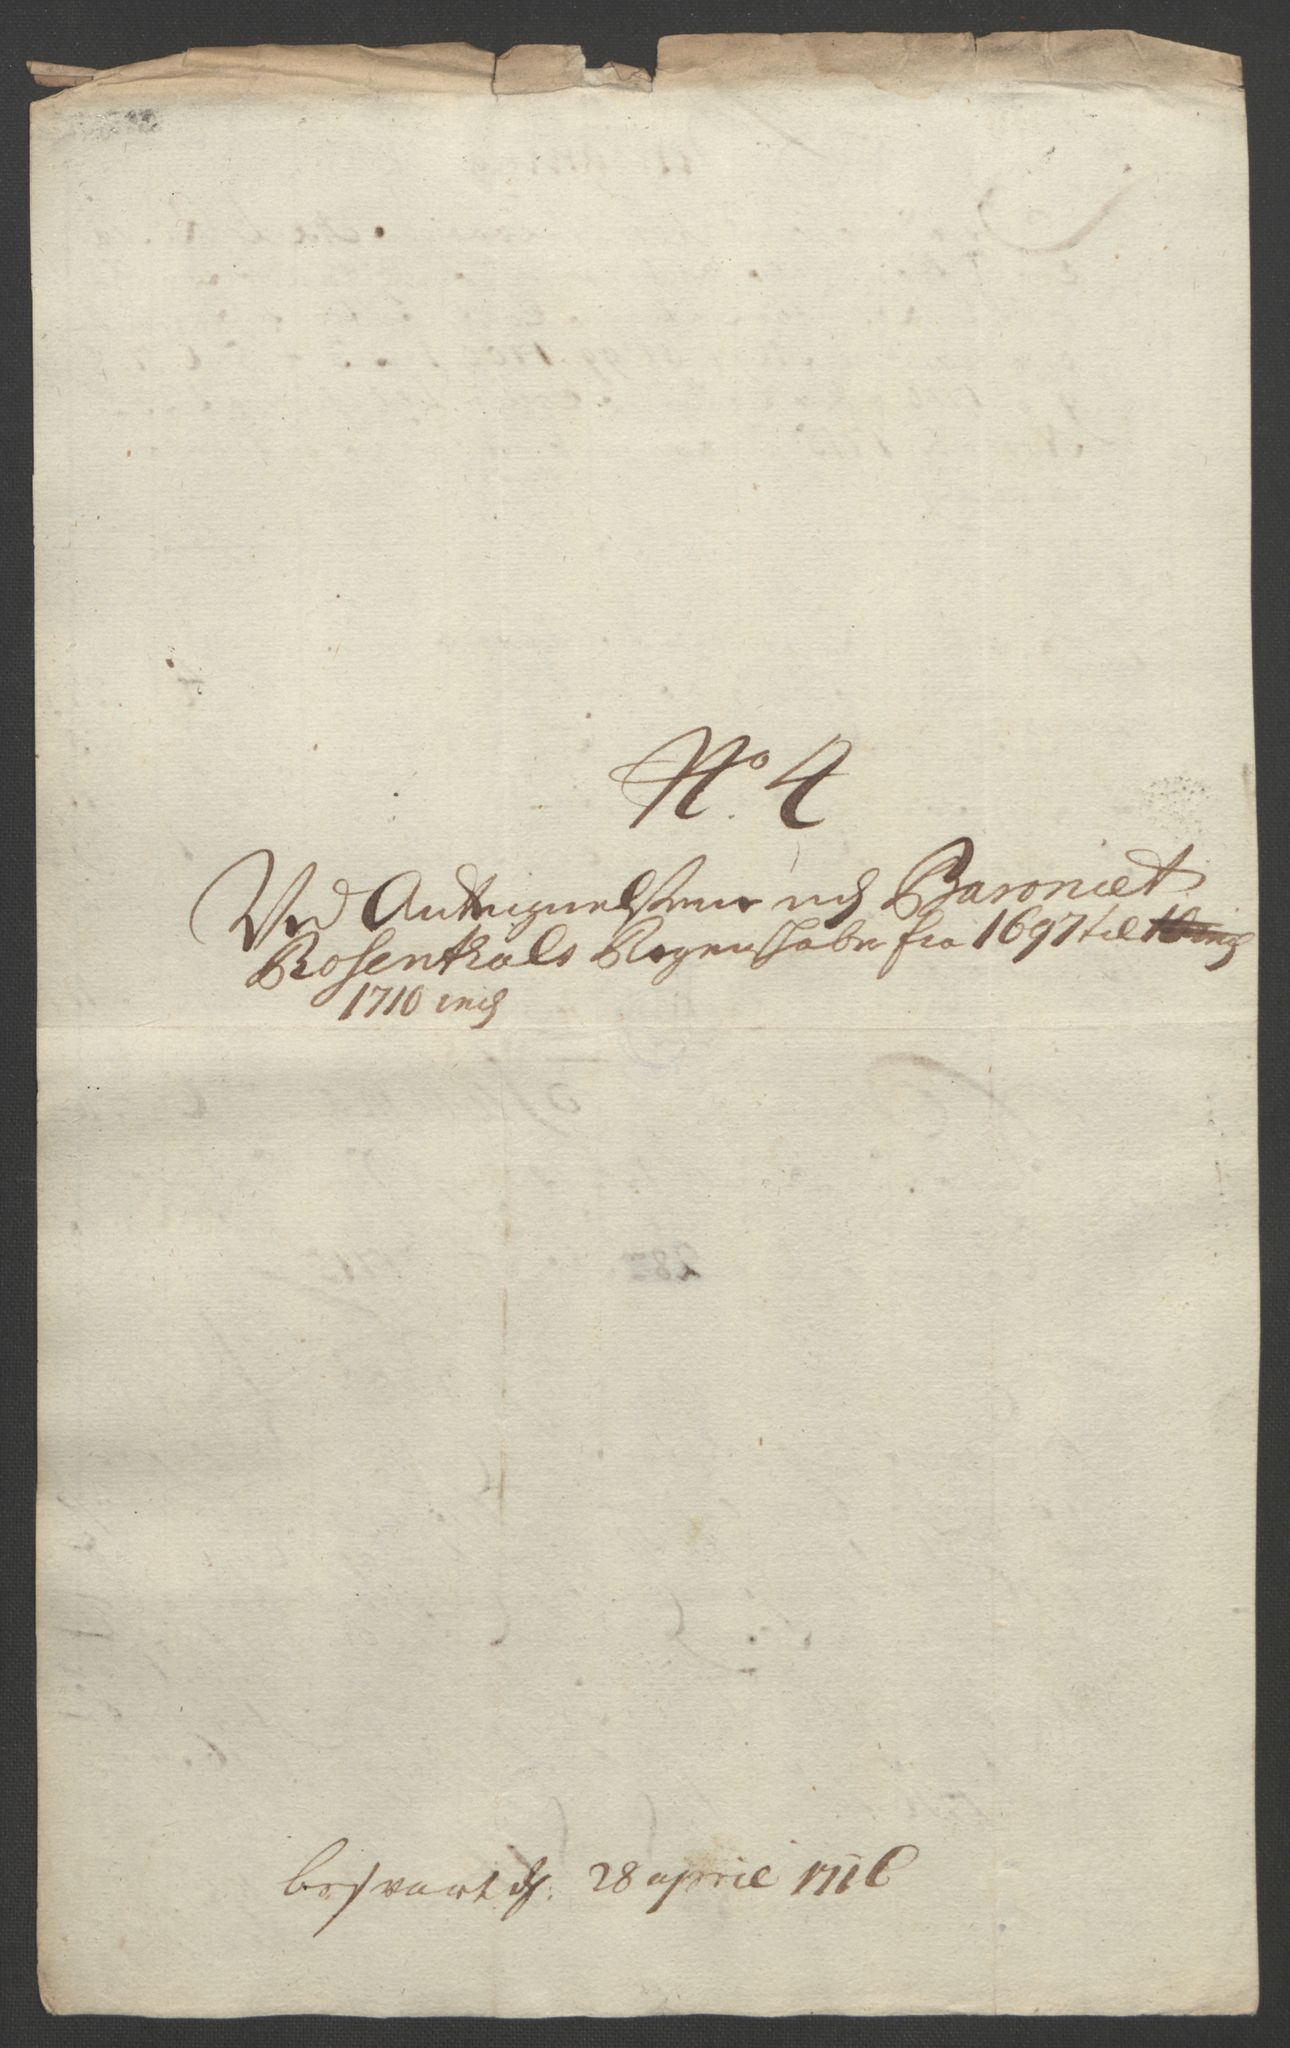 No. 4
Ved Antegnelserne udj Baroniet
Rosendals Regenskaber fra 1697 til
1710 incl
besvart d. 28 april 1716